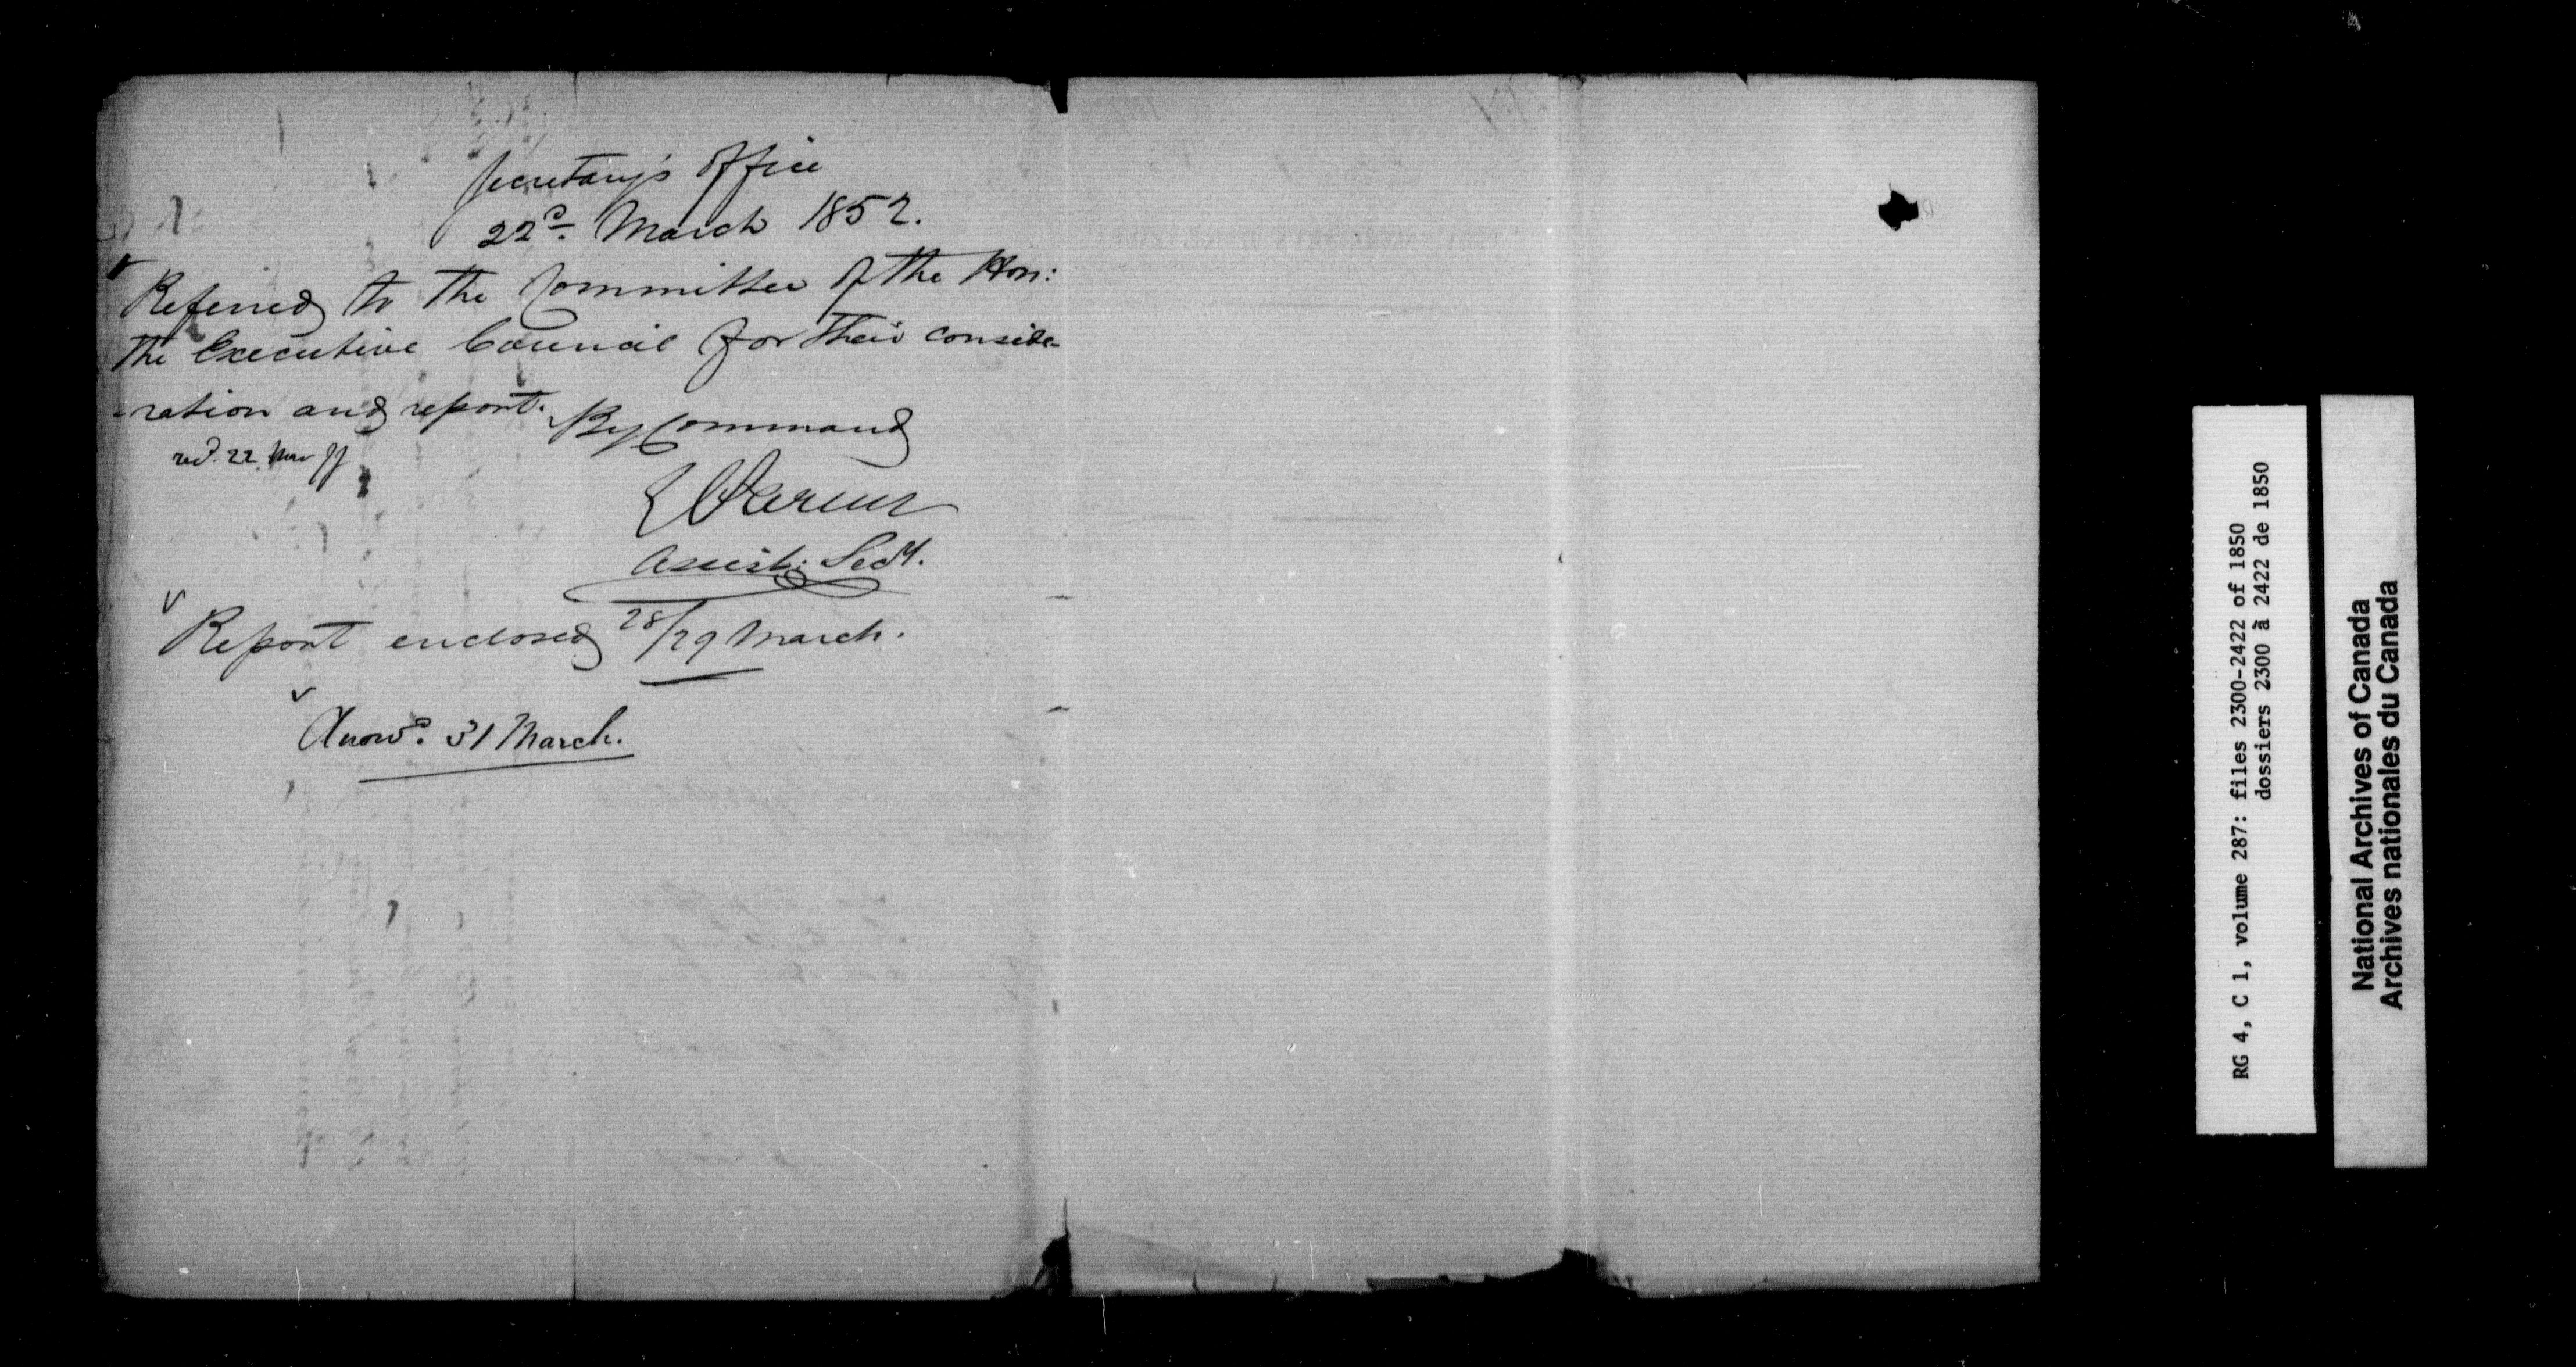 Secretary's Office
22d. March 1852.
Referred to the Committee of the Hon:
the Executive Council for their conside-
-ration and report.
By Command
recd. 22 Mar
E Parent
Assist: Secy.
Report enclosed 28/29 March.
Answd. 31 March.
RG 4, C 1, volume 287: files 2300-2422 of 1850
dossiers 2300 à 2422 de 1850
National Archives of Canada
Archives nationales du Canada